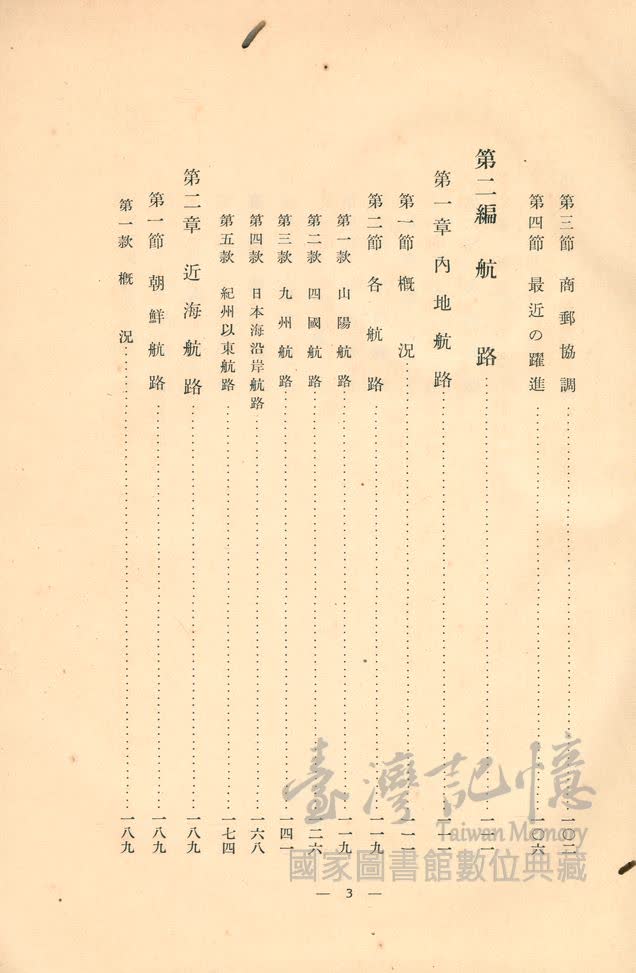 第三節 商郵協調……一〇二
第四節 最近の躍進……一〇六
第二編 航路……一一一
第一章 內地航路……一一一
第一節 概況……一一一
第二節 各航路……一一九
第一款 山陽航路……一一九
第二款 四國航路……一二六
第三款 九州航路……一四一
第四款 日本海沿岸航路……一六八
第五款 紀州以東航路……一七四
第二章 近海航路……一八九
第一節 朝鮮航路……一八九
第一款 概況……一八九
臺灣記憶
Taiwan Memory
國家圖書館數位典藏
— 3 —